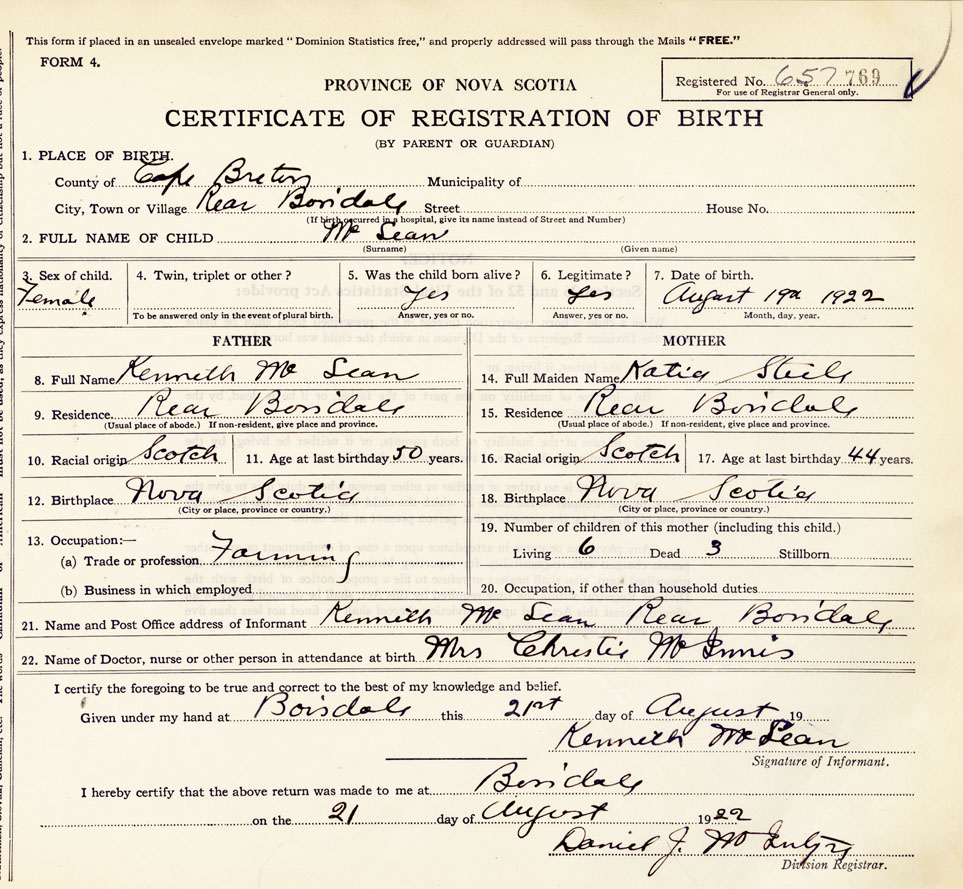 This form if placed in an unsealed envelope marked "Dominion Statistics free," and properly addressed will pass through the Mails "FREE."
FORM 4.
Registered No. 657 769
For use of Registrar General only.
PROVINCE OF NOVA SCOTIA
CERTIFICATE OF REGISTRATION OF BIRTH
(BY PARENT OR GUARDIAN)
1. PLACE OF BIRTH.
County of Cape Breton Municipality of
City, Town or Village Rear Boisdale Street House No.
(If birth occurred in a hospital, give its name instead of Street and Number)
2. FULL NAME OF CHILD Mc Lean
(Surname) (Given name)
3. Sex of child. 4. Twin, triplet or other? 5. Was the child born alive? 6. Legitimate? 7. Date of birth.
Female Yes Yes August 19th 1922
To be answered only in the event of plural birth. Answer, yes or no. Answer, yes or no. Month, day, year.
FATHER MOTHER
8. Full Name Kenneth Mc Lean 14. Full Maiden Name Katie Steele
9. Residence Rear Boisdale 15. Residence Rear Boisdale
(Usual place of abode.) If non-resident, give place and province. (Usual place of abode.) If non-resident, give place and province.
10. Racial origin Scotch 11. Age at last birthday 50 years. 16. Racial origin Scotch 17. Age at last birthday 44 years.
12. Birthplace Nova Scotia 18. Birthplace Nova Scotia
(City or place, province or country.) (City or place, province or country.)
19. Number of children of this mother (including this child.)
13. Occupation:—
(a) Trade or profession Farming Living 6 Dead 3 Stillborn
(b) Business in which employed 20. Occupation, if other than household duties
21. Name and Post Office address of Informant Kenneth Mc Lean Rear Boisdale
22. Name of Doctor, nurse or other person in attendance at birth Mrs Christie McInnis
I certify the foregoing to be true and correct to the best of my knowledge and belief.
Given under my hand at Boisdale this 21st day of August 19
Kenneth McLean
Signature of Informant.
I hereby certify that the above return was made to me at Boisdale
on the 21 day of August 1922
Daniel J. McIntyre
Division Registrar.